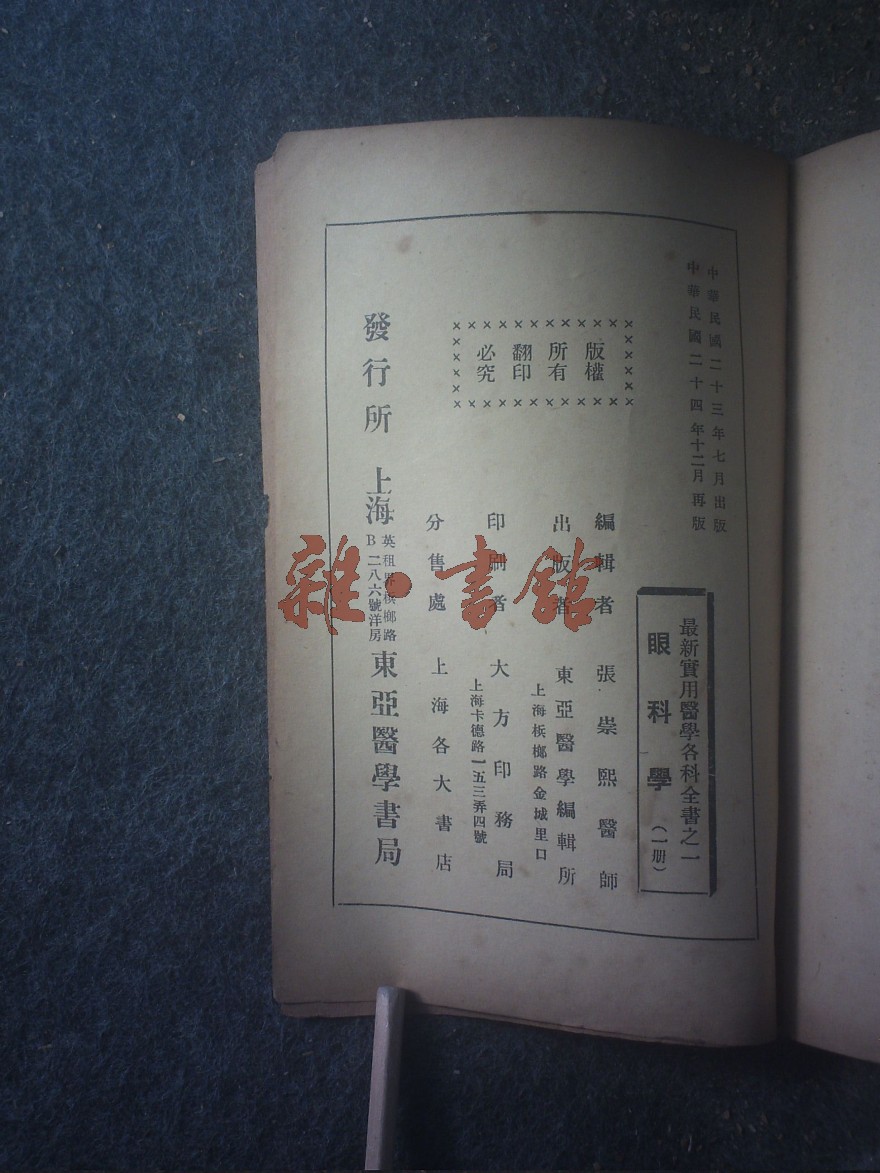 中華民國二十三年七月出版
中華民國二十四年十二月再版
最新實用醫學各科全書之一
眼科學(一册)
版權
所有
翻印
必究
編輯者 張崇熙醫師
出版者 東亞醫學編輯所
上海梹榔路金城里口
印刷者 大方印務局
上海卡德路一五三弄四號
分售處 上海各大書店
發行所 上海 英租界梹榔路
B二八六號洋房 東亞醫學書局
雜·書館